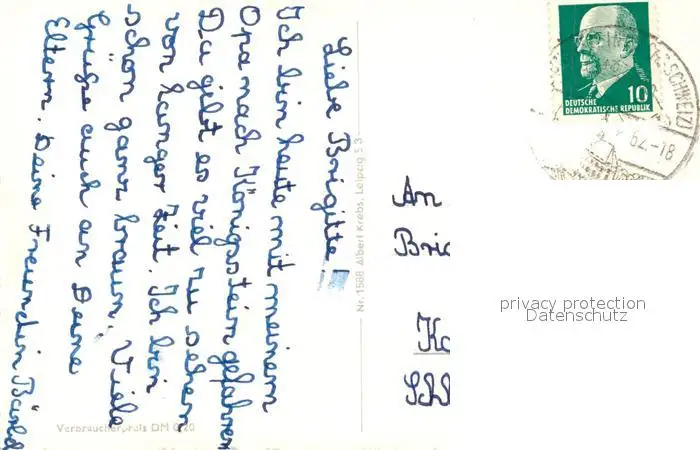 Liebe Brigitte!
Ich bin heute mit meinem
Opa nach Königsstein gefahren
Da gibt es viel zu sehen
von
Zeit. Ich bin
schön ganz braun. Viele
Grüße auch an Deine
Eltern. Deine Freundin
Nr. 1588 Albert Krebs, Leipzig S 3
Verbraucherpreis DM 0,20
An
Bri
Kö
Sch
10
DEUTSCHE
DEMOKRATISCHE REPUBLIK
SCHWEIZ)
62.-18
privacy protection
Datenschutz